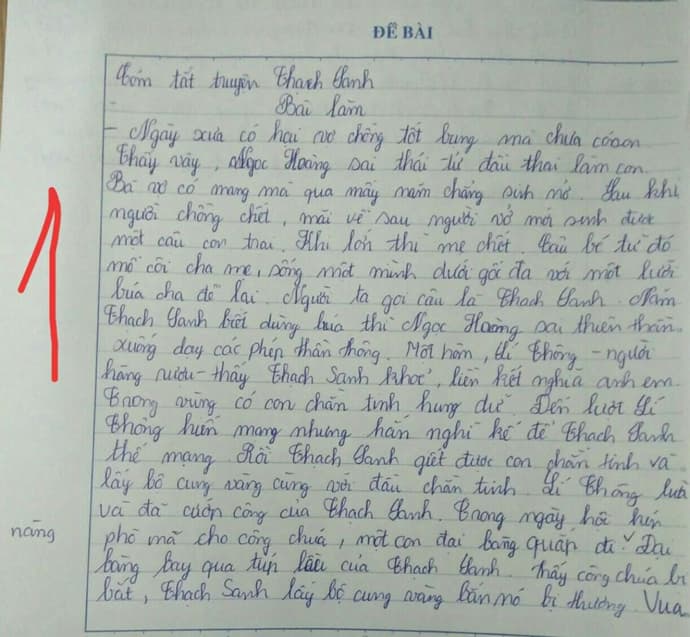 ĐỀ BÀI
Tóm tắt truyện Thạch Sanh
Bài làm
- Ngày xưa có hai vợ chồng tốt bụng mà chưa có con
Thấy vậy, Ngọc Hoàng sai thái tử đầu thai làm con.
Bà vợ có mang mà qua mấy năm chẳng sinh nở. Sau khi
người chồng chết, mãi về sau người vở mới sinh được
một cậu con trai. Khi lớn thì mẹ chết. Cậu bé từ đó
mồ côi cha mẹ, sống một mình dưới gốc đa với một lưỡi
búa cha để lại. Người ta gọi cậu là Thạch Sanh. Năm
Thạch Sanh biết dùng búa thì Ngọc Hoàng sai thiên thần
xuống dạy các phép thần thông. Một hôm, Lí Thông - người
hàng rượu - thấy Thạch Sanh khoẻ, liền kết nghĩa anh em
Trong vùng có con chằn tinh hung dữ. Đến lượt Lí
Thông hiến mạng nhưng hắn nghĩ kế để Thạch Sanh
thế mạng Rồi Thạch Sanh giết được con chằn tinh và
lấy bộ cung vàng cùng với đầu chằn tinh. Lí Thông lừa
và đã cướp công của Thạch Sanh. Trong ngày hội kén
phò mã cho công chúa, một con đại bàng quắp đi. Đại
nàng
bàng bay qua túp lều của Thạch Sanh. Thấy công chúa bị
bắt, Thạch Sanh lấy bộ cung vàng bắn nó bị thương Vua
1